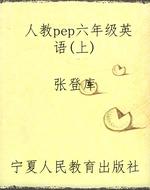 人教pep六年级英
语(上)
张登库
宁夏人民教育出版社